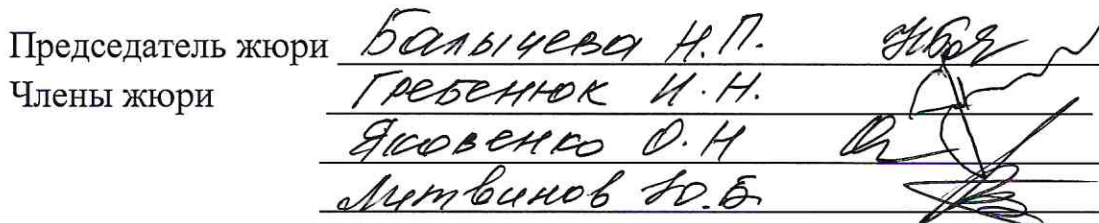 Председатель жюри Балычева Н.П.
Члены жюри Гребенюк И.Н.
Яковенко О.Н
Литвинов Ю.Б.